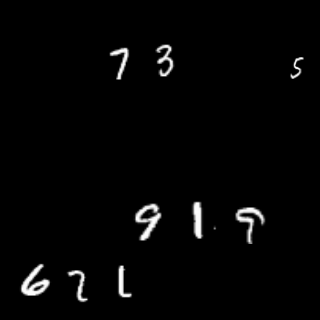 7 3 5
9 1 9
6 2 1